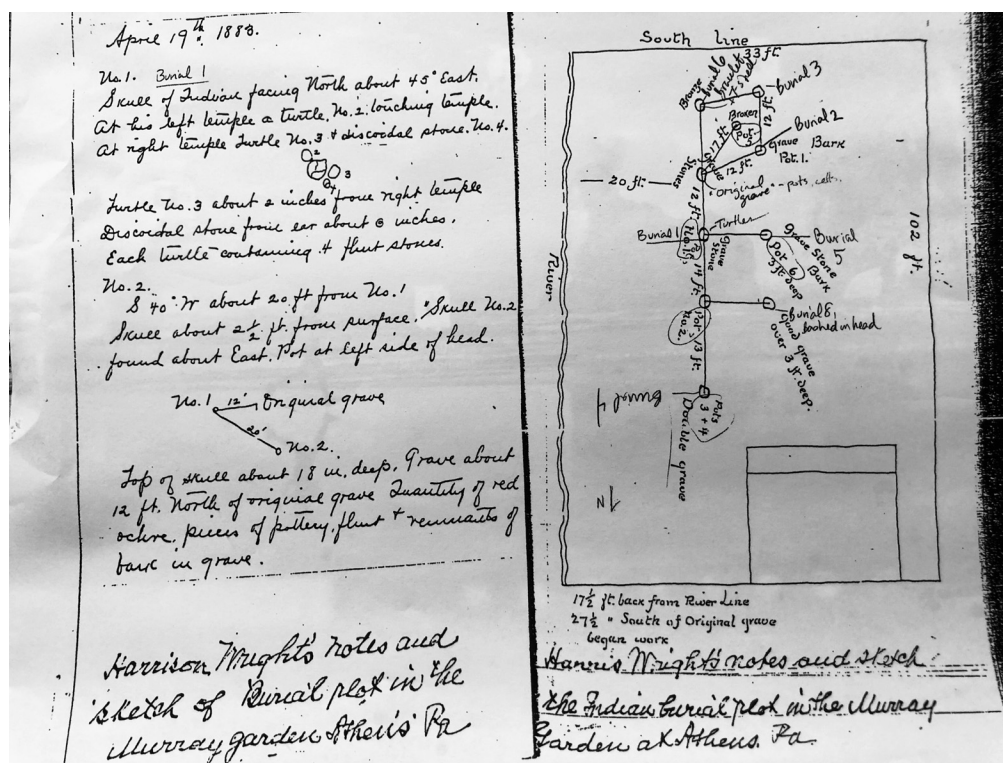 April 19th. 1883.
No. 1. Burial 1
Skull of Indian facing North about 45° East.
At his left temple a turtle, No. 2. touching temple.
At right temple Turtle No. 3 + discoidal stone. No. 4.
2
3
4
Turtle No. 3 about 2 inches from right temple
Discoidal stone from ear about 6 inches.
Each turtle containing 4 flint stones.
No. 2.
S 40° W about 20 ft from No. 1
Skull about 2 1/2 ft. from surface. "Skull No. 2
found about East. Pot at left side of head.
No. 1 12' Original grave
20'
No. 2.
Top of skull about 18 in. deep. Grave about
12 ft. North of original grave Quantity of red
ochre, pieces of pottery, flint + remnants of
bark in grave.
Harrison Wright's notes and
sketch of Burial plot in the
Murray garden Athens Pa
South Line
33 ft.
Bronze
Burial 6
bracelet
Burial 3
12 ft.
Broken
Pot
5
17 ft.
Burial 2
grave
Bark
Pot. 1.
Stones
grave
12 ft.
20 ft.
"Original
grave" - pots, celt.
12 ft
Turtles
Burial 1
No. 1.
grave
stone
grave stone
Bark
Burial
5
Pot 6
3 ft deep
14 ft.
River
102 ft.
Pot 2
No. 2.
Burial 8,
bashed in head
good grave
over 3 ft. deep.
13 ft.
Burial 4
Pots
3 + 4
Double grave
N
17 1/2 ft. back from River Line
27 1/2 " South of Original grave
began work
Harris Wright's notes and sketch
the Indian burial plot in the Murray
Garden at Athens. Pa.